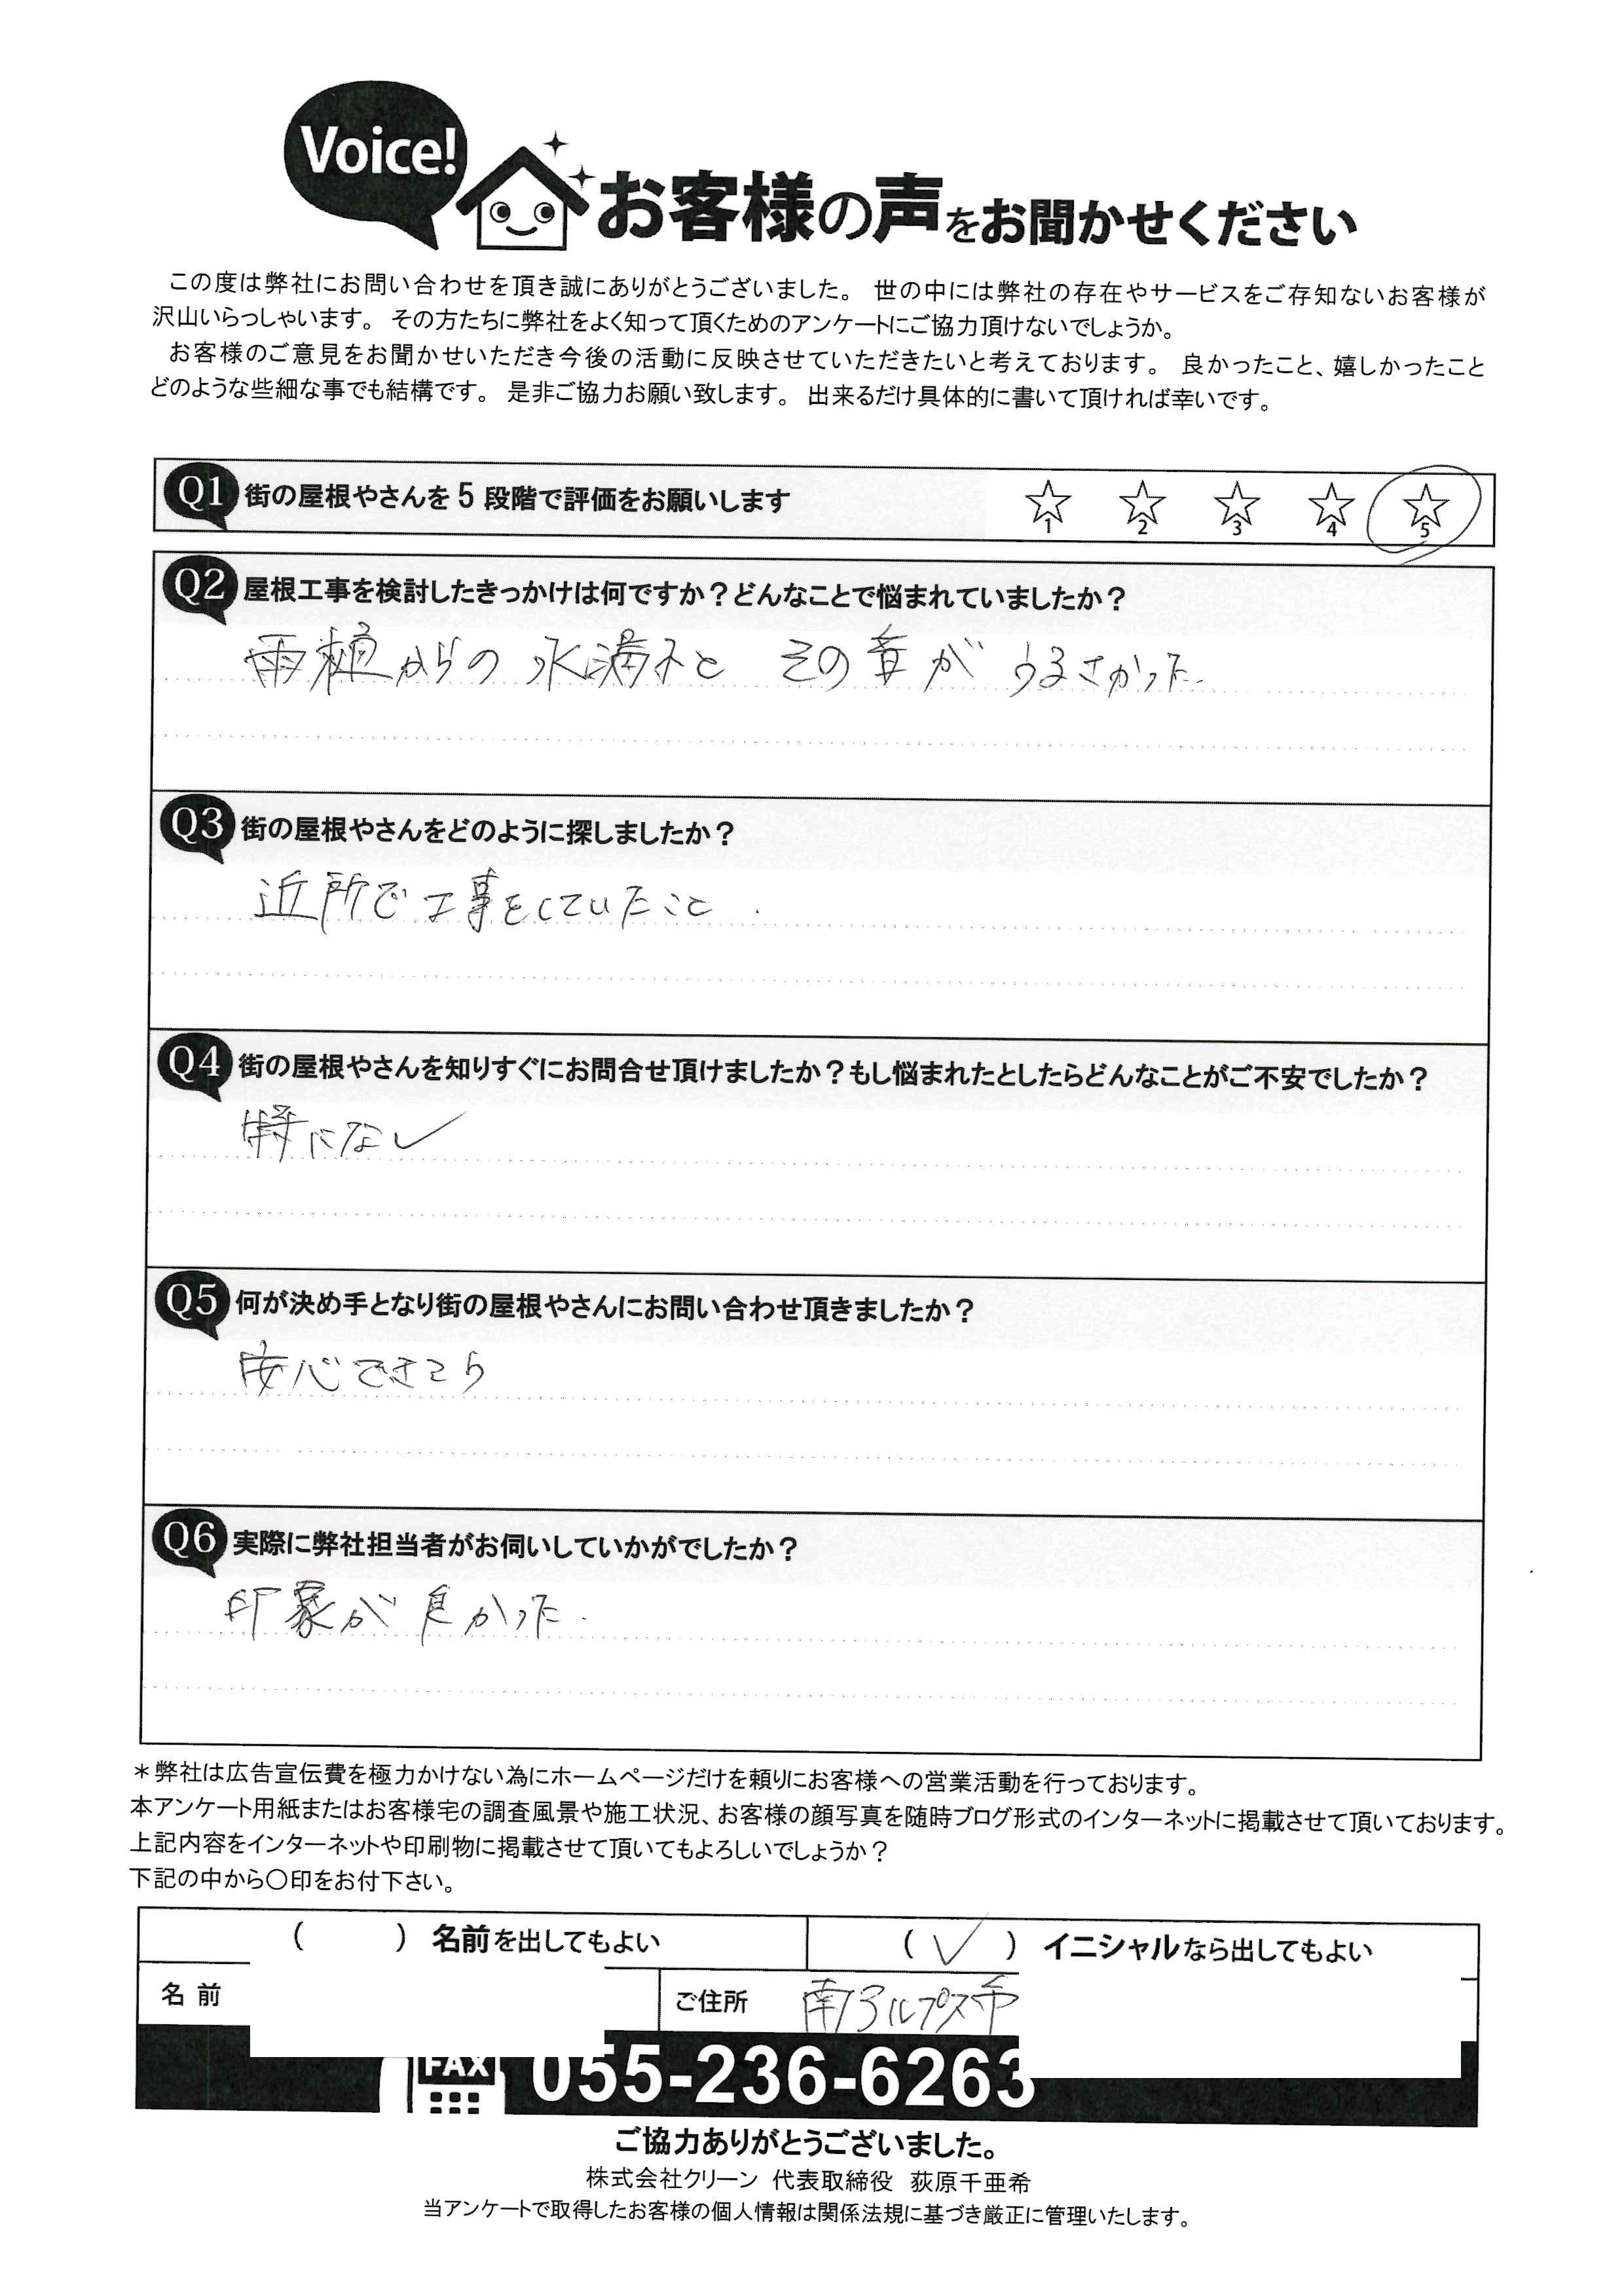 Voice!
お客様の声をお聞かせください
この度は弊社にお問い合わせを頂き誠にありがとうございました。 世の中には弊社の存在やサービスをご存知ないお客様が
沢山いらっしゃいます。 その方たちに弊社をよく知って頂くためのアンケートにご協力頂けないでしょうか。
お客様のご意見をお聞かせいただき今後の活動に反映させていただきたいと考えております。 良かったこと、嬉しかったこと
どのような些細な事でも結構です。 是非ご協力お願い致します。 出来るだけ具体的に書いて頂ければ幸いです。
Q1 街の屋根やさんを 5 段階で評価をお願いします ☆1 ☆2 ☆3 ☆4 ☆5
Q2 屋根工事を検討したきっかけは何ですか？どんなことで悩まれていましたか？
雨樋からの水漏れと その音が うるさかった.
Q3 街の屋根やさんをどのように探しましたか？
近所で工事をしていたこと.
Q4 街の屋根やさんを知りすぐにお問合せ頂けましたか？もし悩まれたとしたらどんなことがご不安でしたか？
特になし
Q5 何が決め手となり街の屋根やさんにお問い合わせ頂きましたか？
安心できそう
Q6 実際に弊社担当者がお伺いしていかがでしたか？
印象が良かった.
＊弊社は広告宣伝費を極力かけない為にホームページだけを頼りにお客様への営業活動を行っております。
本アンケート用紙またはお客様宅の調査風景や施工状況、お客様の顔写真を随時ブログ形式のインターネットに掲載させて頂いております。
上記内容をインターネットや印刷物に掲載させて頂いてもよろしいでしょうか？
下記の中から〇印をお付下さい。
（　　）名前を出してもよい （✓）イニシャルなら出してもよい
名 前 ご住所 南アルプス市
FAX 055-236-6263
ご協力ありがとうございました。
株式会社クリーン 代表取締役 荻原千亜希
当アンケートで取得したお客様の個人情報は関係法規に基づき厳正に管理いたします。